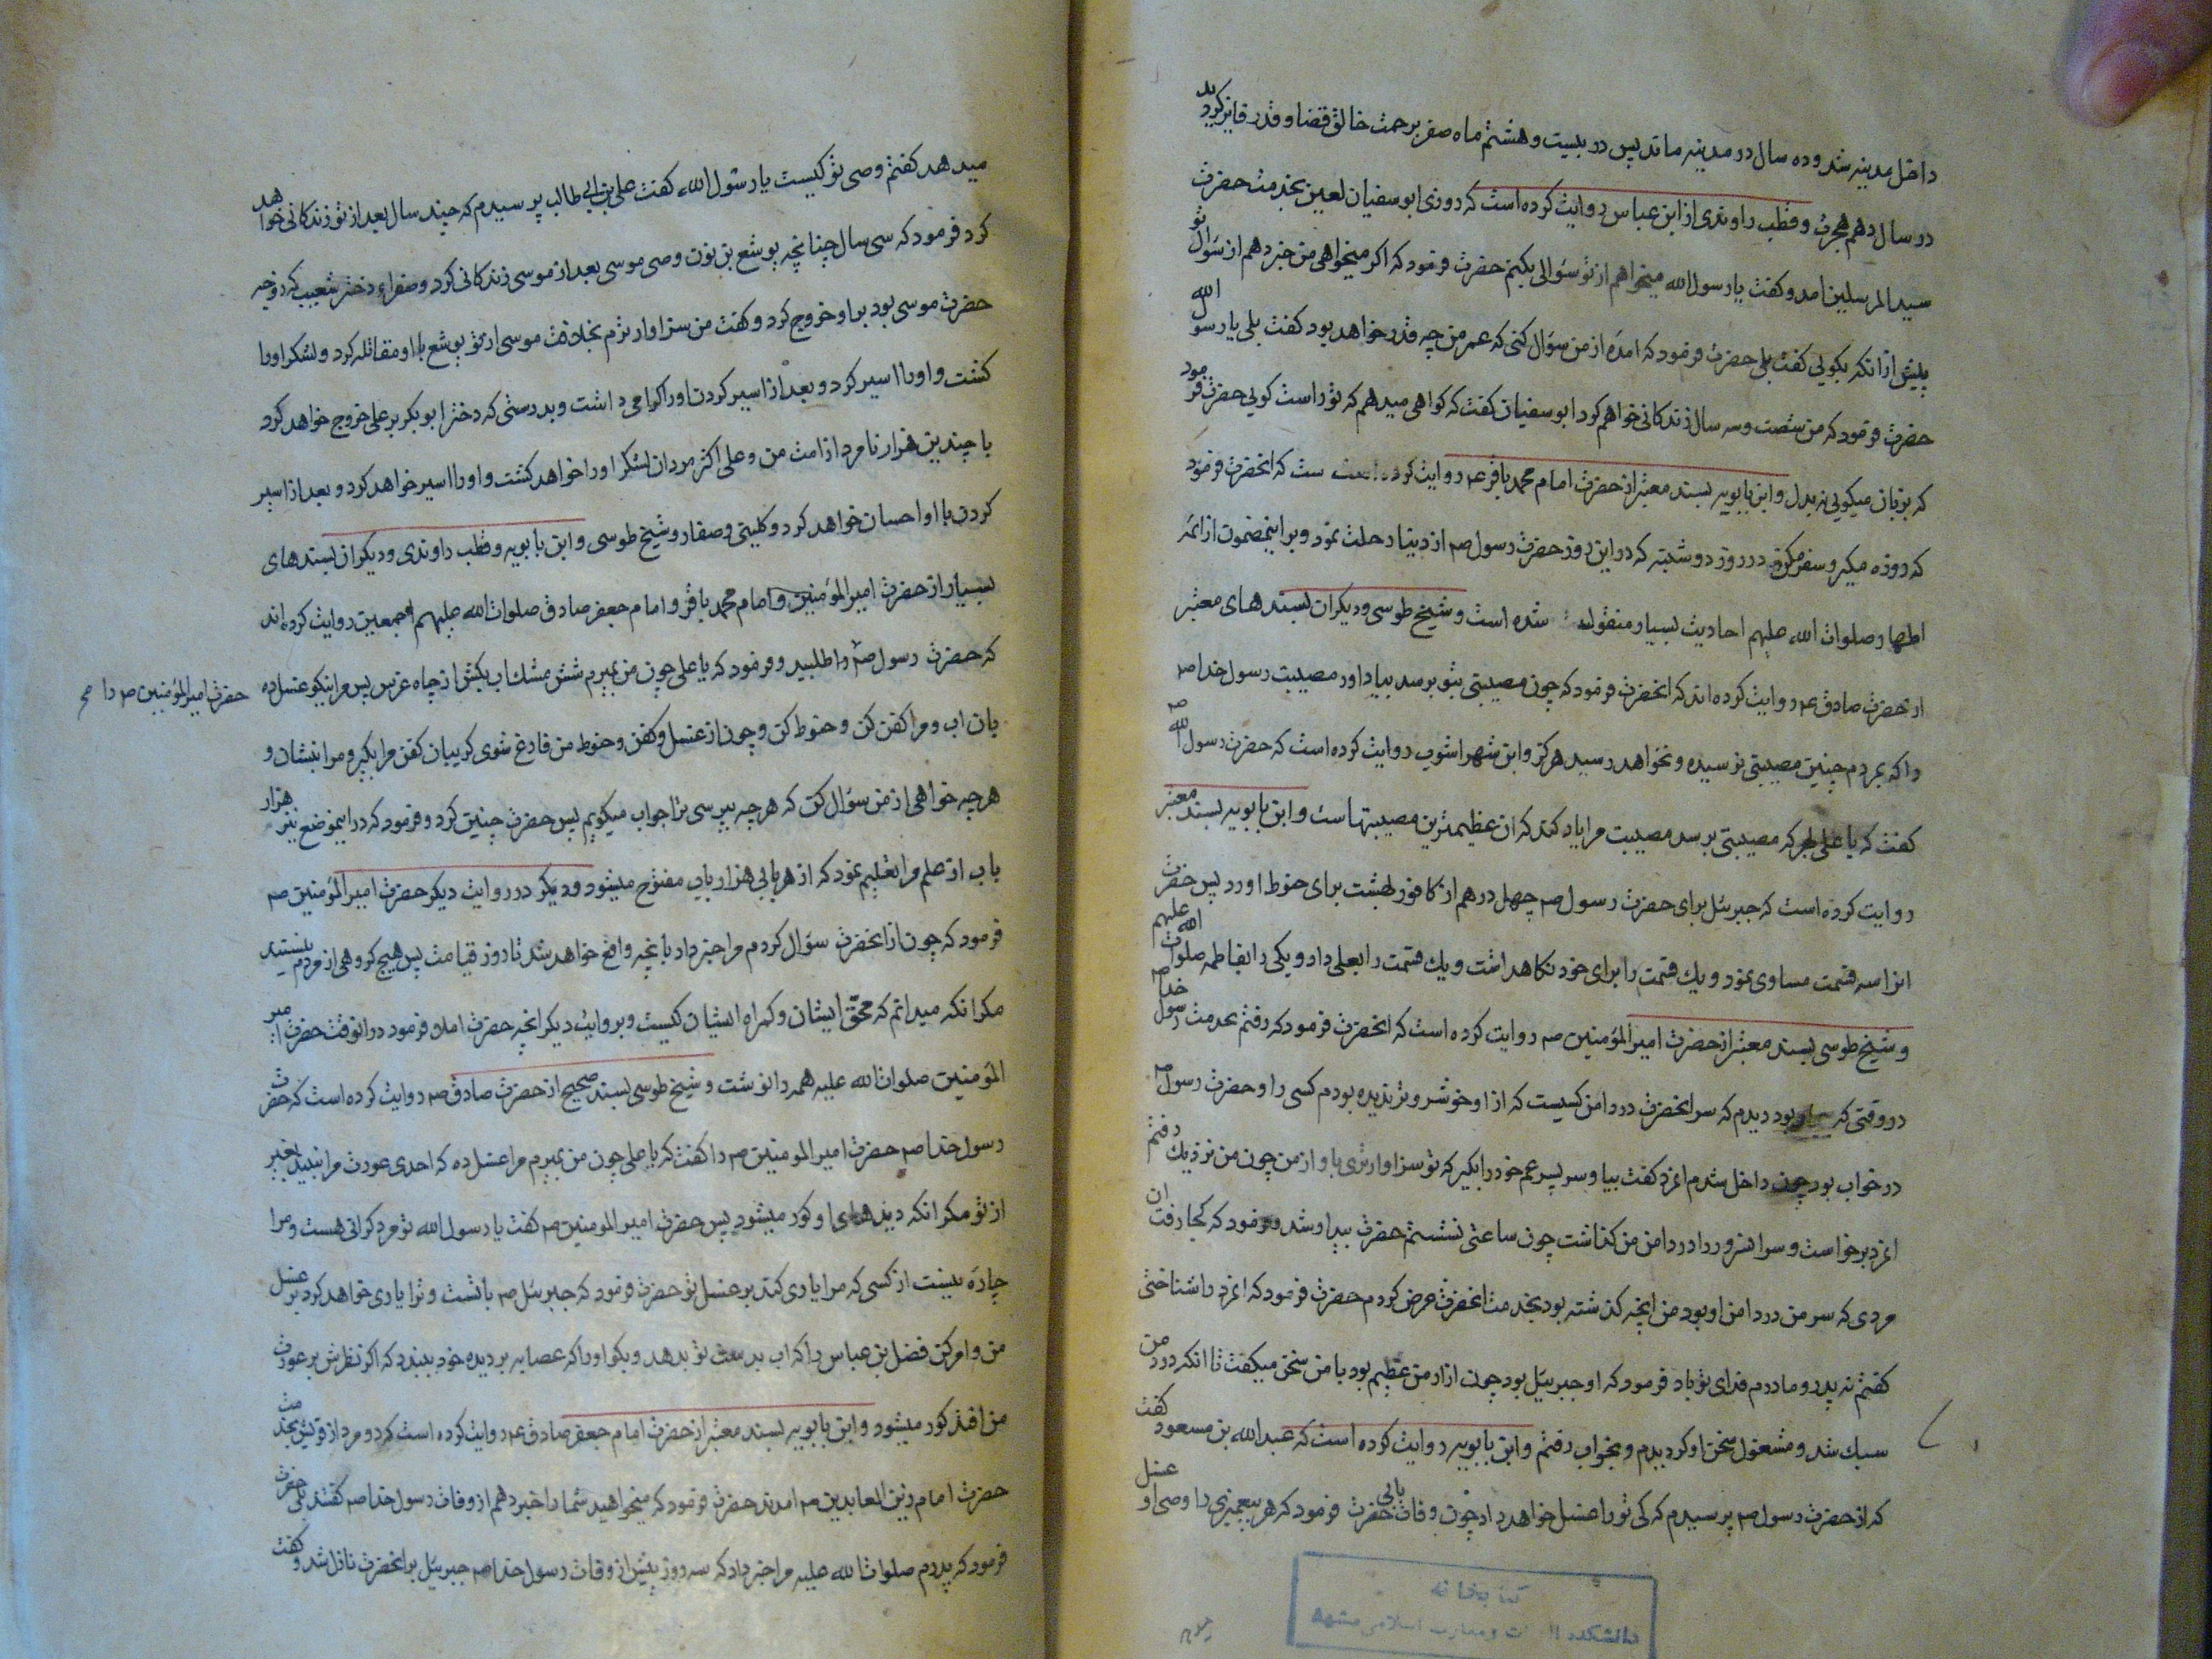 داخل مدینه شد و ده سال در مدینه ماند پس در بیست و هشتم ماه صفر برحمت خالق قضا و قدر فایز کردید
در سال دهم هجرت و قطب راوندی از ابن عباس روایت کرده است که روزی ابو سفیان لعین بخدمت حضرت
سید المرسلین امد و کفت یا رسول الله میخواهم از تو سؤالی بکنم حضرت فرمود که اکر میخواهی من خبر دهم از سؤال تو
پیش از انکه بکویی کفت بلی حضرت فرمود که امده از من سؤال کنی که عمر من چه قدر خواهد بود کفت بلی یا رسول الله
حضرت فرمود که من شصت و سه سال زندکانی خواهم کرد ابو سفیان کفت که کواهی میدهم که تو راست کویی حضرت فرمود
که بزبان میکویی نه بدل و ابن بابویه بسند معتبر از حضرت امام محمد باقر عم روایت کرده است که انحضرت فرمود
که روزه مکیر و سفر مکن در روز دوشنبه که در این روز حضرت رسول صم از دنیا رحلت نمود و بر اینمضمون از ائمه
اطهار صلوات الله علیهم احادیث بسیار منقول شده است و شیخ طوسی و دیکران بسندهای معتبر
از حضرت صادق عم روایت کرده اند که انحضرت فرمود که چون مصیبتی بتو برسد بیاد اور مصیبت رسول خدا صم
را که بمردم چنین مصیبتی نرسیده و نخواهد رسید هرکز و ابن شهراشوب روایت کرده است که حضرت رسول الله صم
کفت که یا علی هر که مصیبتی برسد مصیبت مرا یاد کند که ان عظیمترین مصیبتهاست و ابن بابویه بسند معتبر
روایت کرده است که جبرئیل برای حضرت رسول صم چهل درهم از کافور بهشت برای حنوط اورد پس حضرت
انرا سه قسمت مساوی نمود و یك قسمت را برای خود نکاهداشت و یك قسمت را بعلی داد و یکی را بفاطمه صلوات الله علیهم
و شیخ طوسی بسند معتبر از حضرت امیر المؤمنین صم روایت کرده است که انحضرت فرمود که رفتم بخدمت رسول خدا صم
در وقتی که بیمار بود دیدم که سر انحضرت در دامن کسیست که از او خوشروتر ندیده بودم کسی را و حضرت رسول صم
در خواب بود چون داخل شدم انمرد کفت بیا و سر پسر عم خود را بکیر که تو سزاوارتری باو از من چون من نزدیك رفتم
انمرد برخواست و سر انسرور را در دامن من کذاشت چون ساعتی نشستم حضرت بیدار شد و فرمود که کجا رفت ان
مردی که سر من در دامن او بود من انچه کذشته بود بخدمت انحضرت عرض کردم حضرت فرمود که انمرد را شناختی
کفتم نه پدر و مادرم فدای تو باد فرمود که او جبرئیل بود چون ازار من عظیم بود با من سخن میکفت تا انکه درد من
سبك شد و مشغول سخن او کردیدم و بخواب رفتم و ابن بابویه روایت کرده است که عبد الله بن مسعود کفت
که از حضرت رسول صم پرسیدم که کی تو را غسل خواهد داد چون وفات یابی حضرت فرمود که هر پیغمبری را وصی او غسل
کتابخانه
دانشکده الهیات و معارف اسلامی مشهد
میدهد
میدهد کفتم وصی تو کیست یا رسول الله کفت علی بن ابی طالب پرسیدم که چند سال بعد از تو زندکانی خواهد
کرد فرمود که سی سال چنانچه یوشع بن نون وصی موسی بعد از موسی زندکانی کرد و صفراء دختر شعیب که زوجه
حضرت موسی بود بر او خروج کرد و کفت من سزاوارترم بخلافت موسی از تو یوشع با او مقاتله کرد و لشکر او را
کشت و او را اسیر کرد و بعد از اسیر کردن او را کرامی داشت و بدرستی که دختر ابو بکر بر علی خروج خواهد کرد
با چندین هزار نامرد از امت من و علی اکثر مردان لشکر او را خواهد کشت و او را اسیر خواهد کرد و بعد از اسیر
کردن با او احسان خواهد کرد و کلینی و صفار و شیخ طوسی و ابن بابویه و قطب راوندی و دیکران بسندهای
بسیار از حضرت امیر المؤمنین و امام محمد باقر و امام جعفر صادق صلوات الله علیهم اجمعین روایت کرده اند
که حضرت رسول صم را طلبید و فرمود که یا علی چون من بمیرم شش مشك اب بکش از چاه غرس پس مرا نیکو غسل ده
حضرت امیر المؤمنین صم را صح
بان اب و مرا کفن کن و حنوط کن و چون از غسل و کفن و حنوط من فارغ شوی کریبان کفن مرا بکیر و مرا بنشان و
هر چه خواهی از من سؤال کن که هر چه بپرسی ترا جواب میکویم پس حضرت چنین کرد و فرمود که در اینموضع نیز هزار
باب از علم مرا تعلیم نمود که از هر بابی هزار باب مفتوح میشود و در روایت دیکر حضرت امیر المؤمنین صم
فرمود که چون از انحضرت سؤال کردم مرا خبر داد بانچه واقع خواهد شد تا روز قیامت پس هیچ کروهی از مردم نیستند
مکر انکه میدانم که محق ایشان و کمراه ایشان کیست و بروایت دیکر انچه حضرت املا فرمود در انوقت حضرت امیر
المؤمنین صلوات الله علیه همه را نوشت و شیخ طوسی بسند صحیح از حضرت صادق صم روایت کرده است که حضرت
رسول خدا صم حضرت امیر المومنین صم را کفت که یا علی چون من بمیرم مرا غسل ده که احدی عورت مرا نبیند بغیر
از تو مکر انکه دیدهای او کور میشود پس حضرت امیر المومنین صم کفت یا رسول الله تو مرد کرانی هست و مرا
چاره نیست از کسی که مرا یاری کند بر غسل تو حضرت فرمود که جبرئیل صم با تست و ترا یاری خواهد کرد بر غسل
من و امر کن فضل بن عباس را که اب بدست تو بدهد و بکو او را که عصابه بر دیده خود ببندد که اکر نظرش بر عورت
من افتد کور میشود و ابن بابویه بسند معتبر از حضرت امام جعفر صادق عم روایت کرده است که دو مرد از قریش بخدمت
حضرت امام زین العابدین صم امدند حضرت فرمود که میخواهید شما را خبر دهم از وفات رسول خدا صم کفتند بلی حضرت
فرمود که پدرم صلوات الله علیه مرا خبر داد که سه روز پیش از وفات رسول خدا صم جبرئیل بر انحضرت نازل شد و کفت